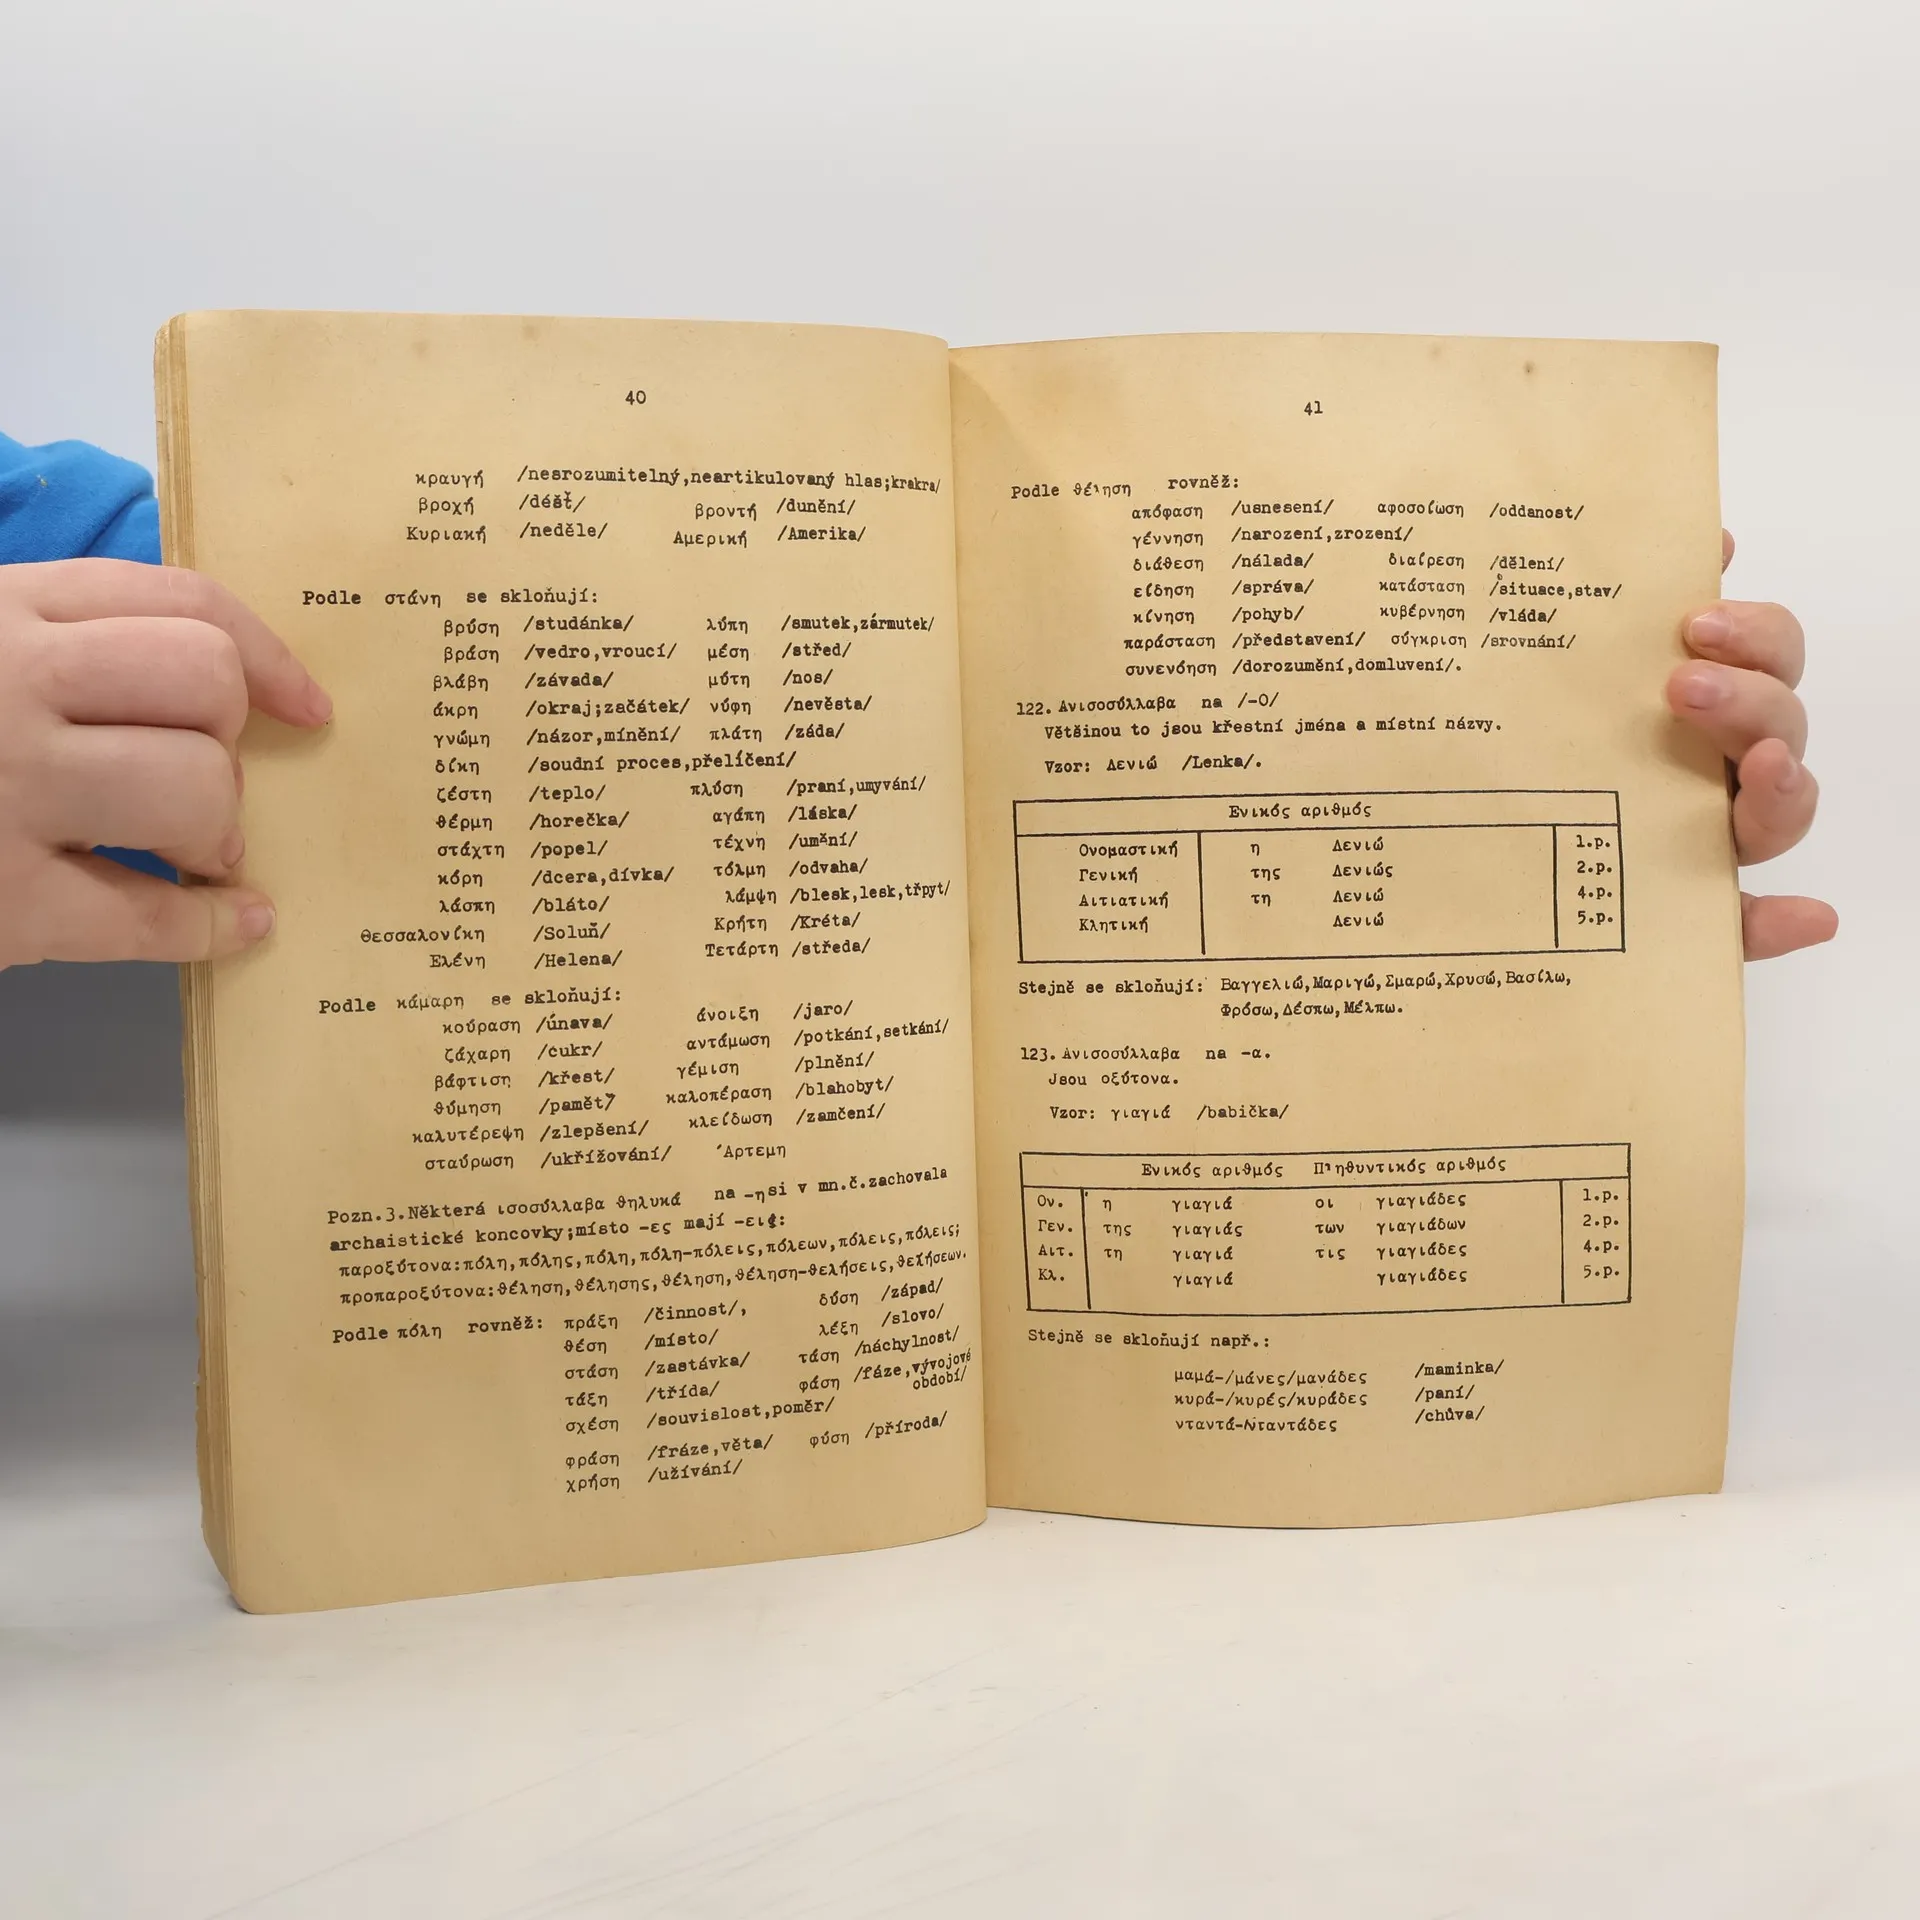 40
κραυγή /nesrozumitelný,neartikulovaný hlas;krákra/
βροχή /déšť/ βροντή /dunění/
Κυριακή /neděle/ Αμερική /Amerika/
Podle στάνη se skloňují:
βρύση /studánka/ λύπη /smutek,zármutek/
βράση /vedro,vroucí/ μέση /střed/
βλάβη /závada/ μύτη /nos/
άκρη /okraj;začátek/ νύφη /nevěsta/
γνώμη /názor,mínění/ πλάτη /záda/
δίκη /soudní proces,přelíčení/
ζέστη /teplo/ πλύση /praní,umyvání/
θέρμη /horečka/ αγάπη /láska/
στάχτη /popel/ τέχνη /umění/
κόρη /dcera,dívka/ τόλμη /odvaha/
λάσπη /bláto/ λάμψη /blesk,lesk,třpyt/
Θεσσαλονίκη /Soluň/ Κρήτη /Kréta/
Ελένη /Helena/ Τετάρτη /středa/
Podle κάμαρη se skloňují:
κούραση /únava/ άνοιξη /jaro/
ζάχαρη /cukr/ αντάμωση /potkání,setkání/
βάφτιση /křest/ γέμιση /plnění/
θύμηση /paměť/ καλοπέραση /blahobyt/
καλυτέρεψη /zlepšení/ κλείδωση /zamčení/
σταύρωση /ukřížování/ Άρτεμη
Pozn.3.Některá ισοσύλλαβα θηλυκά na -η si v mn.č.zachovala
archaistické koncovky;místo -ες mají -εις:
παροξύτονα:πόλη,πόλης,πόλη,πόλη-πόλεις,πόλεων,πόλεις,πόλεις;
προπαροξύτονα:θέληση,θέλησης,θέληση,θέληση-θελήσεις,θελήσεων.
Podle πόλη rovněž: πράξη /činnost/, δύση /západ/
θέση /místo/ λέξη /slovo/
στάση /zastávka/ τάση /náchylnost/
τάξη /třída/ φάση /fáze,vývojové
období/
σχέση /souvislost,poměr/
φράση /fráze,věta/ φύση /příroda/
χρήση /užívání/
41
Podle θέληση rovněž:
απόφαση /usnesení/ αφοσοίωση /oddanost/
γέννηση /narození,zrození/
διάθεση /nálada/ διαίρεση /dělení/
είδηση /správa/ κατάσταση /situace,stav/
κίνηση /pohyb/ κυβέρνηση /vláda/
παράσταση /představení/ σύγκριση /srovnání/
συνενόηση /dorozumění,domluvení/.
122. Ανισοσύλλαβα na /-Ο/
Většinou to jsou křestní jména a místní názvy.
Vzor: Λενιώ /Lenka/.
Ενικός αριθμός
Ονομαστική η Λενιώ 1.p.
Γενική της Λενιώς 2.p.
Αιτιατική τη Λενιώ 4.p.
Κλητική Λενιώ 5.p.
Stejně se skloňují: Βαγγελιώ,Μαριγώ,Σμαρώ,Χρυσώ,Βασίλω,
Φρόσω,Δέσπω,Μέλπω.
123. Ανισοσύλλαβα na -α.
Jsou οξύτονα.
Vzor: γιαγιά /babička/
Ενικός αριθμός Πληθυντικός αριθμός
Ον. η γιαγιά οι γιαγιάδες 1.p.
Γεν. της γιαγιάς των γιαγιάδων 2.p.
Αιτ. τη γιαγιά τις γιαγιάδες 4.p.
Κλ. γιαγιά γιαγιάδες 5.p.
Stejně se skloňují např.:
μαμά-/μάνες/μανάδες /maminka/
κυρά-/κυρές/κυράδες /paní/
νταντά-Νταντάδες /chůva/